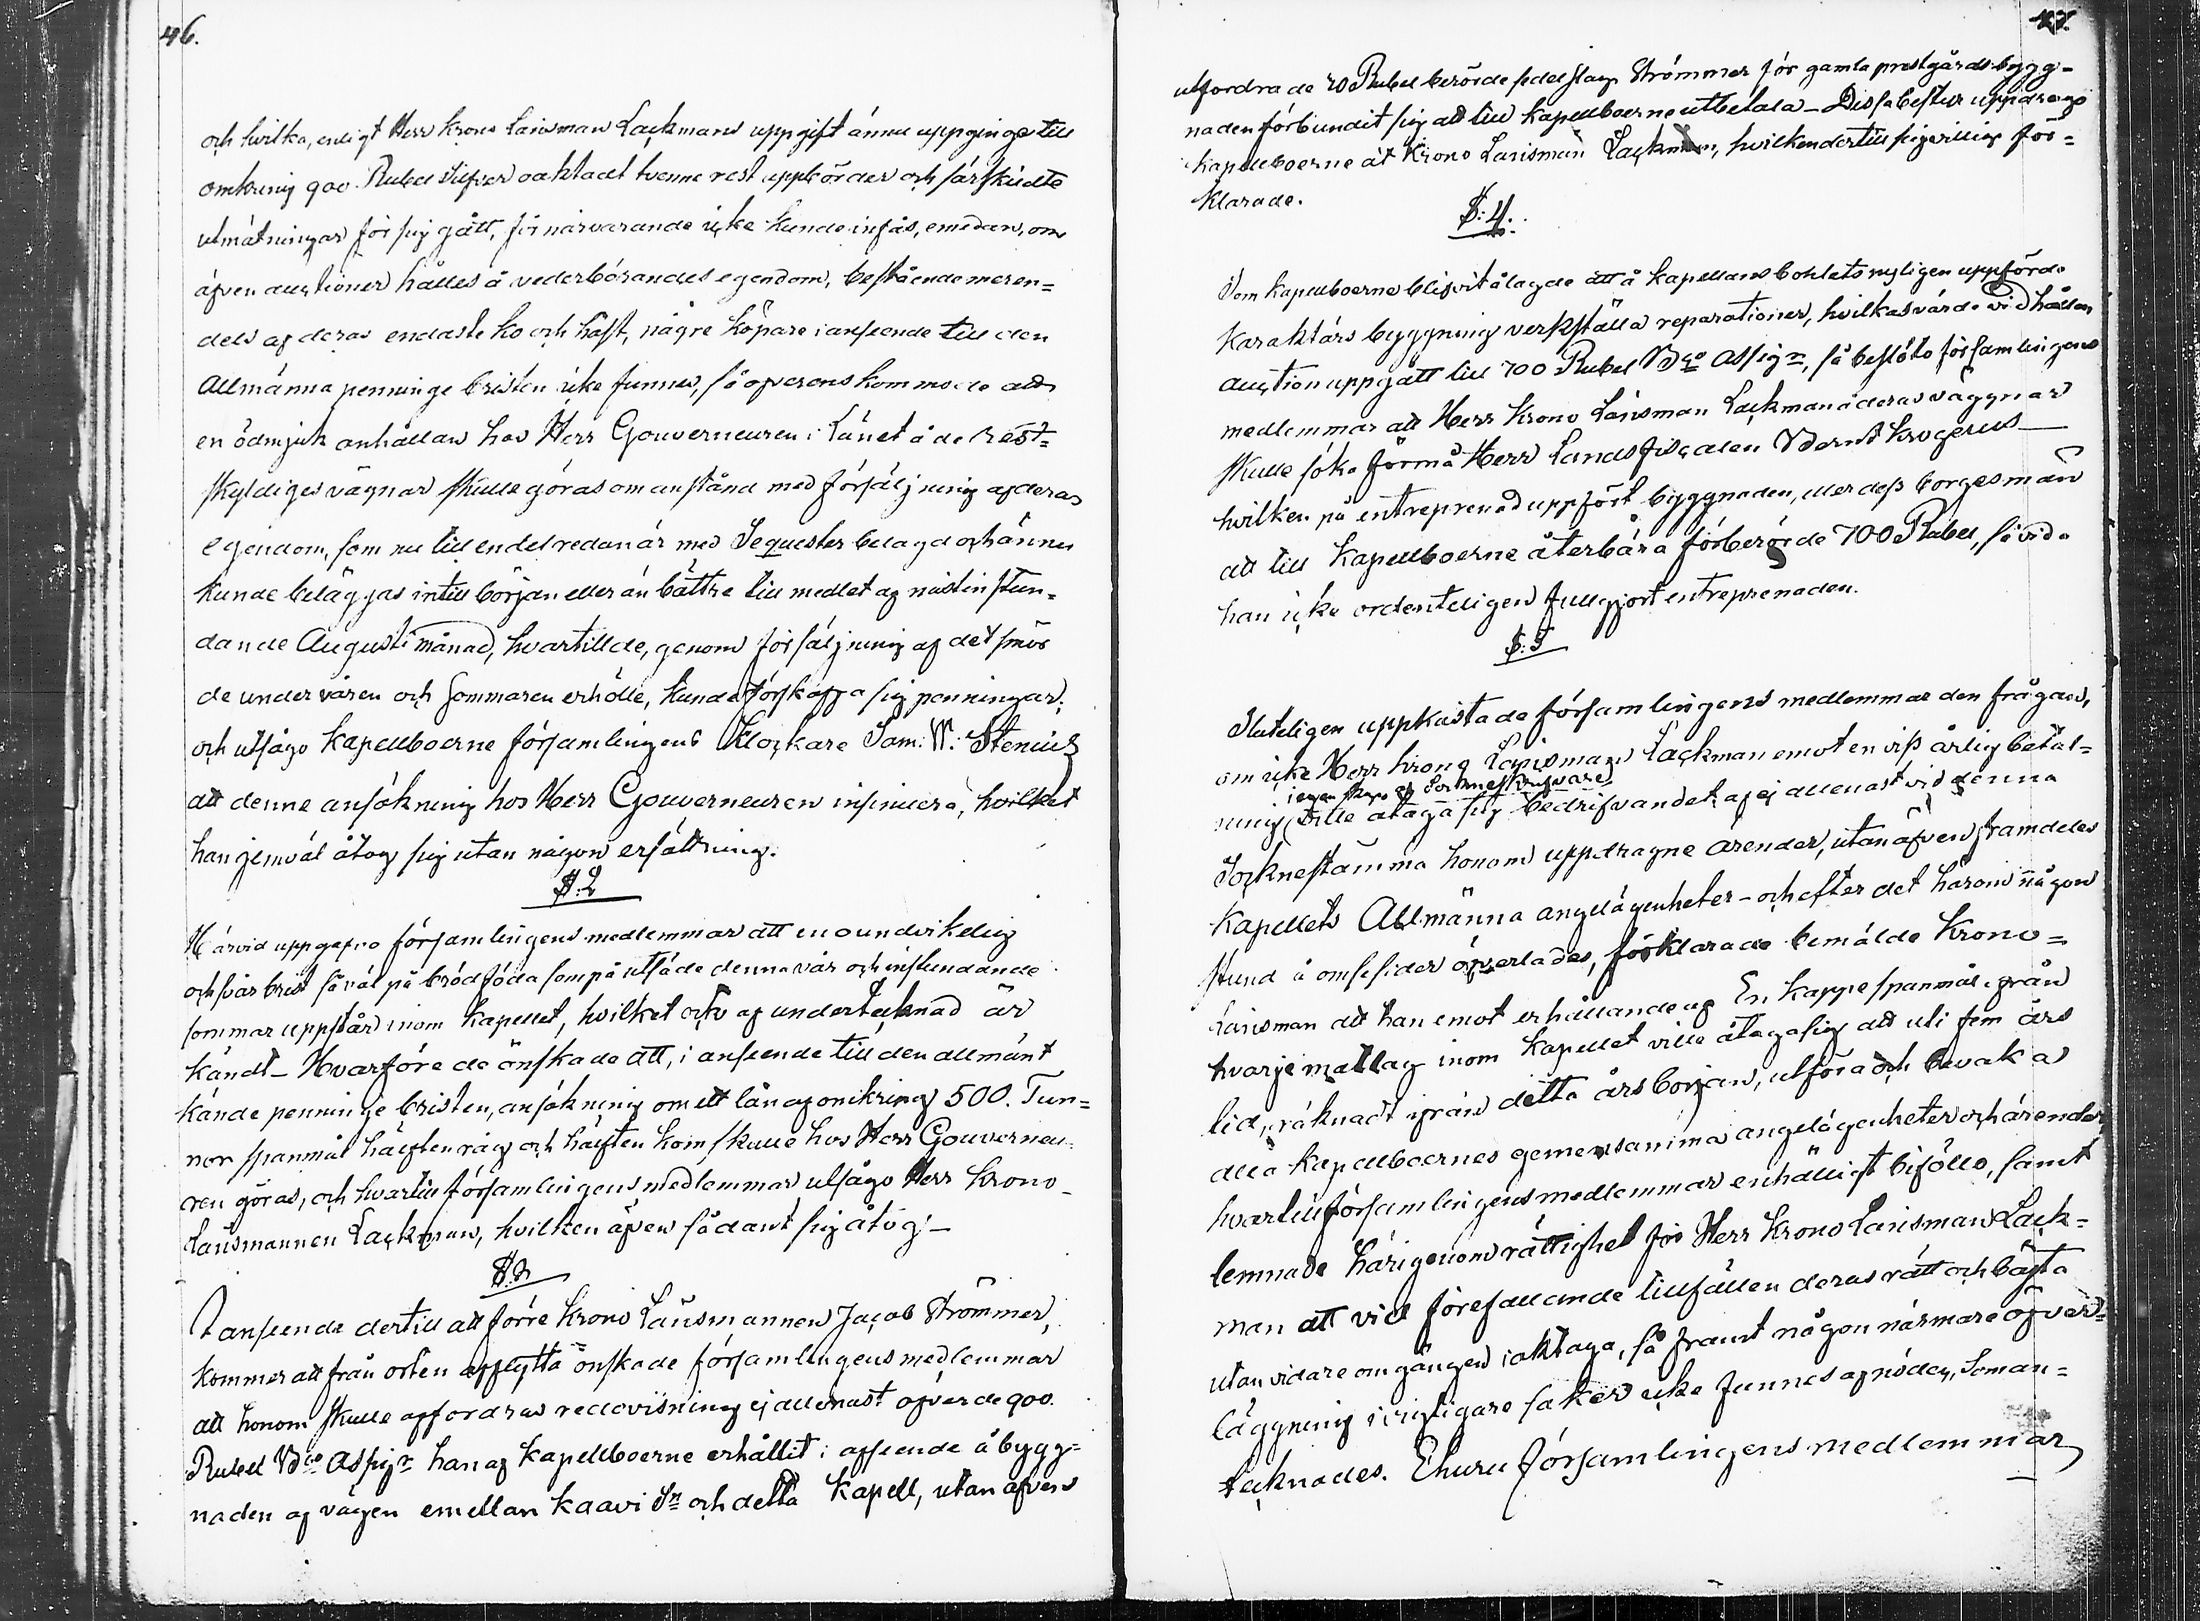 46.
och hvilka, enligt Herr Krono Länsman Lackmans uppgift ännu uppginge till
omkring 900. Rubel Silfver oaktadt tvenne rest uppbörder och särskildte
utmätningar för sig gått, för närvarande icke kunde infås, emedan, om
äfven auctioner hålles å vederbörandes egendom, bestående meren=
dels af deras endaste ko och häst, någre köpare i anseende till den
Allmänna penninge bristen icke funnes, så öfverens kommo de att
en ödmjuk anhållan hos Herr Gouverneuren i Länet å de rest=
skyldiges vägnar skulle göras om anstånd med försäljning af deras
egendom, som nu till en del redan är med Sequester belagd och ännu
kunde beläggas intill början eller än bättre till medlet af nästinstun=
dande Augusti månad, hvartill de, genom försäljning af det smör
de under våren och Sommaren erhölle, kunde förskaffa sig penningar;
och utsågo Kapellboerne församlingens Klockare Sam: W: Stenius
att denne ansökning hos Herr Gouverneuren insinuera, hvilket
han jemväl åtog sig utan någon ersättning.
§: 2
Härvid uppgefvo församlingens medlemmar att en oundvikelig
och svår brist såväl på brödföda som på utsäde denna vår och instundande
sommar uppstår inom Kapellet, hvilket ock af undertecknad är
kändt – Hvarföre de önskade att, i anseende till den allmänt
kände penninge bristen, ansökning om ett lån af omkring 500. Tun=
nor spanmål hälften råg och hälften korn skulle hos Herr Gouverneu=
ren göras, och hvartill församlingens medlemmar utsågo Herr Krono
Länsmannen Lackman, hvilken äfven sådant sig åtog –
§. 3
I anseende dertill att förre Krono Länsmannen Jacob Strömmer,
kommer att från orten afflytta önskade församlingens medlemmar
att honom skulle affordras redovisning ej allenast öfver de 900.
Rubel Bco Assigr han af Kapellboerne erhållit i afseende å bygg=
naden af vägen emellan Kaavi Sn och detta Kapell, utan äfven
47.
utfordra de 20 Rubel berörde sedel slag Strömmer för gamla prestgårds bygg=
naden förbundit sig att till Kapellboerne utbetala – Dessa bestyr uppdrogo
Kapellboerne åt Krono Länsman Lackman, hvilken dertill sig villig för=
klarade.
§: 4:
Som Kapellboerne blifvit ålagde att å Kapellans bohlets nyligen uppförde
Karaktärs byggning verkställa reparationer, hvilkas värde vid hållen
auction uppgått till 700 Rubel Bco Assigr, så beslöto församlingens
medlemmar att Herr Krono Länsman Lackman å deras vägnar
skulle söka förmå Herr Landsfiscalen Berndt Krogerus –
hvilken på entreprenad uppfört byggnaden, eller dess borgesmän
att till Kapellboerne återbära förberörde 700 Rubel, såvida
han icke ordenteligen fullgjort entreprenaden.
§: 5
Sluteligen uppkastade församlingens medlemmar den frågan,
om icke Herr Krono Länsman Lackman emot en viss årlig betal=
i egenskap af Sockneskrifvare
ning, ville åtaga sig bedrifvandet af ej allenast vid denna
Socknestämma honom uppdragne ärender, utan äfven framdeles
Kapellets Allmänna angelägenheter – och efter det härom någon
stund å ömse sider öfverlades, förklarade bemälde Krono=
Länsman att han emot erhållande af En Kappe spanmål ifrån
hvarje matlag inom Kapellet ville åtaga sig att uti fem års
tid, räknadt ifrån detta års början, utföra och bevaka
alla Kapellboernes gemensamma angelägenheter och ärender,
hvartill församlingens medlemmar enhälligt biföllo, samt
lemnade härigenom rättighet för Herr Krono Länsman Lack=
man att vid förefallande tillfällen deras rätt och bästa
utan vidare omgången iakttaga, så framt någon närmare öfver=
läggning i vigtigare saker icke funnes af nöden, Som an=
tecknades. Ehuru församlingens medlemmar